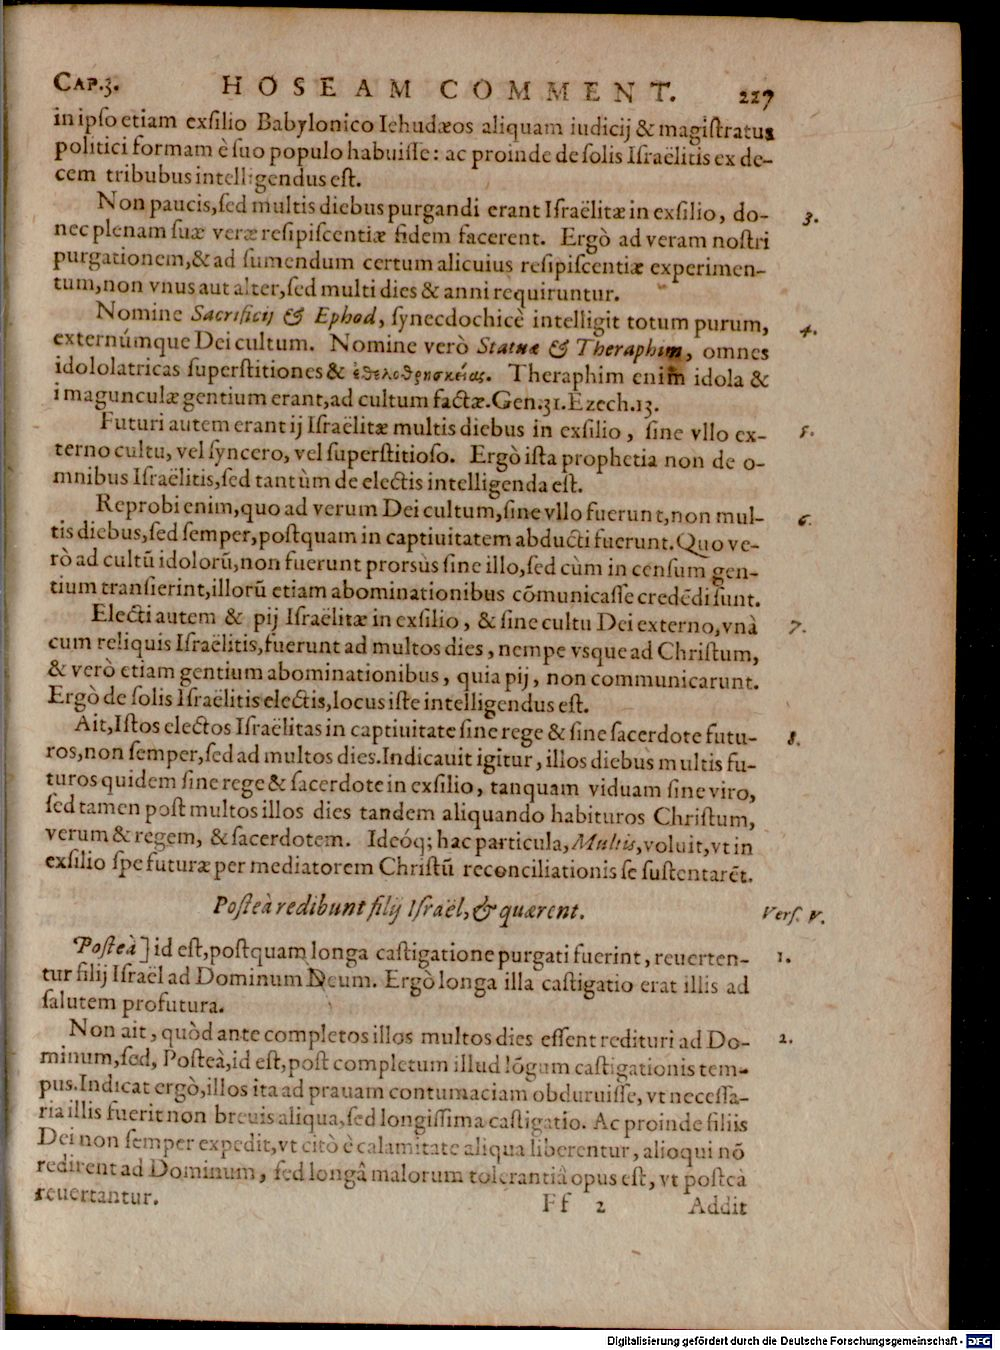 CAP.3. HOSEAM COMMENT. 227
in ipso etiam exsilio Babylonico Iehudæos aliquam iudicij & magistratus
politici formam è suo populo habuisse: ac proinde de solis Israëlitis ex de-
cem tribubus intelligendus est.
Non paucis, sed multis diebus purgandi erant Israëlitæ in exsilio, do- 3.
nec plenam suæ veræ resipiscentiæ fidem facerent. Ergò ad veram nostri
purgationem, & ad sumendum certum alicuius resipiscentiæ experimen-
tum, non vnus aut alter, sed multi dies & anni requiruntur.
Nomine Sacrificij & Ephod, synecdochicè intelligit totum purum, 4.
externúmque Dei cultum. Nomine verò Statuæ & Theraphim, omnes
idololatricas superstitiones & ἐθελοθρησκείας. Theraphim enim idola &
imagunculæ gentium erant, ad cultum factæ. Gen.31. Ezech.13.
Futuri autem erant ij Israëlitæ multis diebus in exsilio, sine vllo ex- 5.
terno cultu, vel syncero, vel superstitioso. Ergò ista prophetia non de o-
mnibus Israëlitis, sed tantùm de electis intelligenda est.
Reprobi enim, quo ad verum Dei cultum, sine vllo fuerunt, non mul- 6.
tis diebus, sed semper, postquam in captiuitatem abducti fuerunt. Quo ve-
rò ad cultū idolorū, non fuerunt prorsùs sine illo, sed cùm in censum gen-
tium transierint, illorū etiam abominationibus cōmunicasse credēdi sunt.
Electi autem & pij Israëlitæ in exsilio, & sine cultu Dei externo, vnà 7.
cum reliquis Israëlitis, fuerunt ad multos dies, nempe vsque ad Christum,
& verò etiam gentium abominationibus, quia pij, non communicarunt.
Ergò de solis Israëlitis electis, locus iste intelligendus est.
Ait, Istos electos Israëlitas in captiuitate sine rege & sine sacerdote futu- 8.
ros, non semper, sed ad multos dies. Indicauit igitur, illos diebus multis fu-
turos quidem sine rege & sacerdote in exsilio, tanquam viduam sine viro,
sed tamen post multos illos dies tandem aliquando habituros Christum,
verum & regem, & sacerdotem. Ideóq; hac particula, Multis, voluit, vt in
exsilio spe futuræ per mediatorem Christū reconciliationis se sustentarēt.
Posteà redibunt filij Israël, & quærent. Vers. V.
Posteà] id est, postquam longa castigatione purgati fuerint, reuerten- 1.
tur filij Israël ad Dominum Deum. Ergò longa illa castigatio erat illis ad
salutem profutura.
Non ait, quòd ante completos illos multos dies essent redituri ad Do- 2.
minum, sed, Posteà, id est, post completum illud lōgum castigationis tem-
pus. Indicat ergò, illos ita ad prauam contumaciam obduruisse, vt necessa-
ria illis fuerit non breuis aliqua, sed longissima castigatio. Ac proinde filiis
Dei non semper expedit, vt citò è calamitate aliqua liberentur, alioqui nō
redirent ad Dominum, sed longâ malorum tolerantiâ opus est, vt posteà
reuertantur. Ff 2 Addit
Digitalisierung gefördert durch die Deutsche Forschungsgemeinschaft - DFG